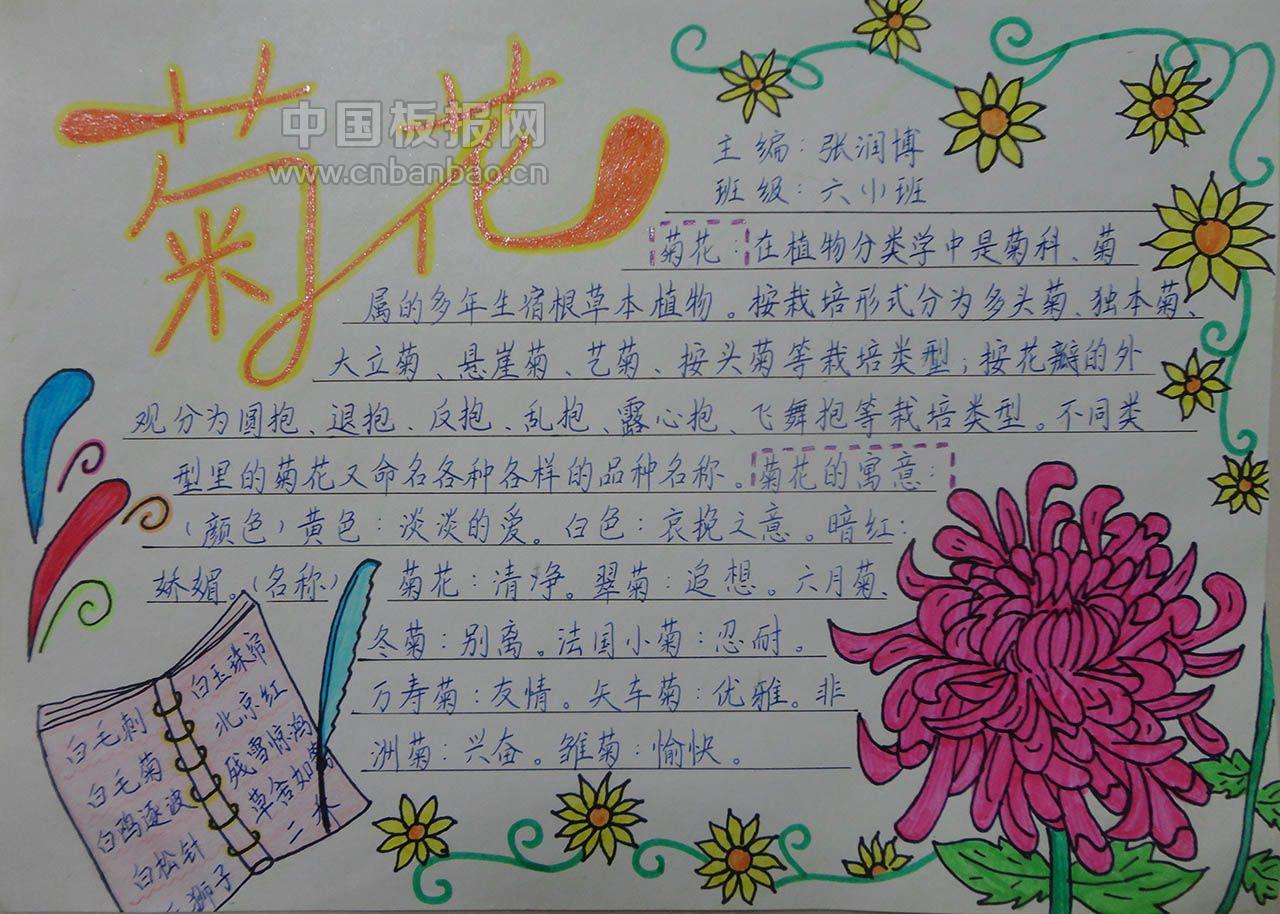 菊花
中国板报网
www.cnbanbao.cn
主编：张润博
班级：六小班
菊花：在植物分类学中是菊科、菊
属的多年生宿根草本植物。按栽培形式分为多头菊、独本菊、
大立菊、悬崖菊、艺菊、按头菊等栽培类型；按花瓣的外
观分为圆抱、退抱、反抱、乱抱、露心抱、飞舞抱等栽培类型。不同类
型里的菊花又命名各种各样的品种名称。菊花的寓意：
（颜色）黄色：淡淡的爱。白色：哀挽之意。暗红：
娇媚。（名称）菊花：清净。翠菊：追想。六月菊、
冬菊：别离。法国小菊：忍耐。
万寿菊：友情。矢车菊：优雅。非
洲菊：兴奋。雏菊：愉快。
白毛刺
白毛菊
白鸥逐波
白松针
狮子
白玉珠帘
北京红
残雪惊鸿
二